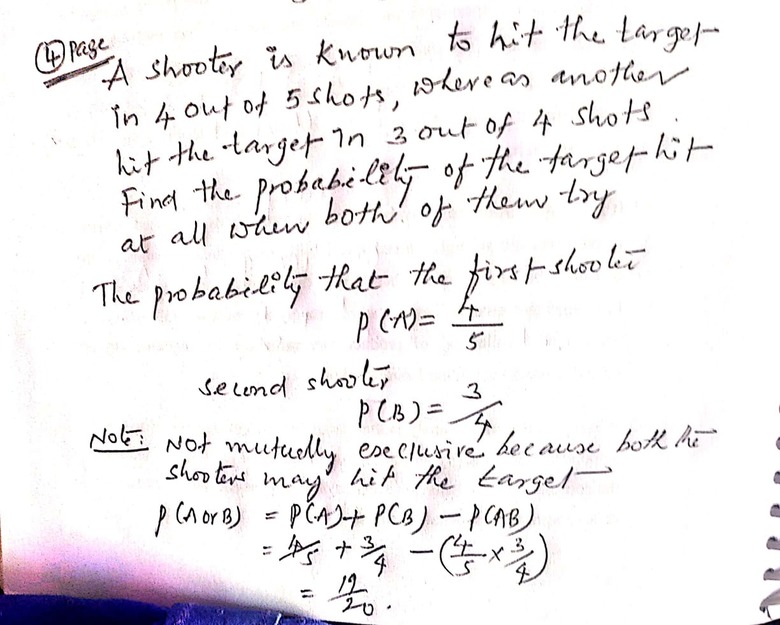 ④ Page
A shooter is known to hit the target
in 4 out of 5 shots, whereas another
hit the target in 3 out of 4 shots.
Find the probability of the target hit
at all when both of them try
The probability that the first shooter
P(A) = 4/5
second shooter
P(B) = 3/4
Note: Not mutually exclusive because both the
shooters may hit the target
P(A or B) = P(A) + P(B) - P(AB)
= 4/5 + 3/4 - (4/5 × 3/4)
= 19/20.